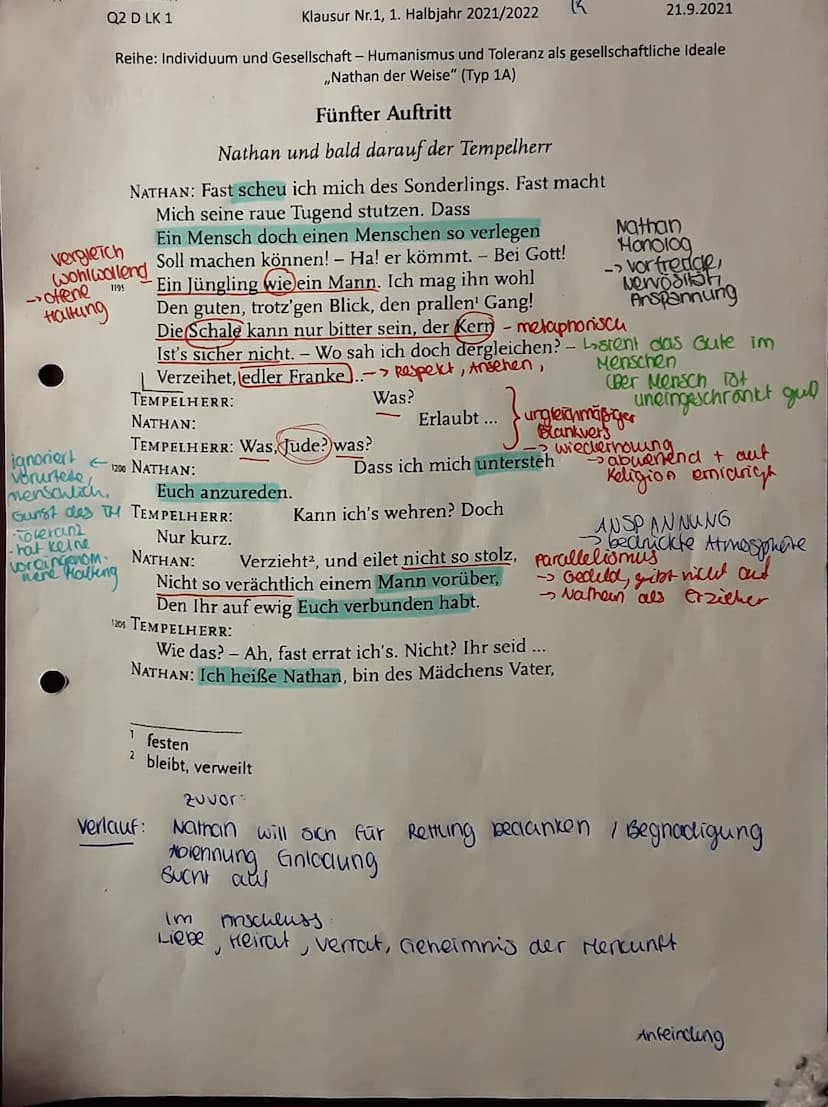 Q2 D LK 1 Klausur Nr.1, 1. Halbjahr 2021/2022 21.9.2021
Reihe: Individuum und Gesellschaft – Humanismus und Toleranz als gesellschaftliche Ideale
„Nathan der Weise“ (Typ 1A)
Fünfter Auftritt
Nathan und bald darauf der Tempelherr
NATHAN: Fast scheu ich mich des Sonderlings. Fast macht
Mich seine raue Tugend stutzen. Dass
Ein Mensch doch einen Menschen so verlegen
Soll machen können! – Ha! er kömmt. – Bei Gott!
1195 Ein Jüngling wie ein Mann. Ich mag ihn wohl
Den guten, trotz'gen Blick, den prallen¹ Gang!
Die Schale kann nur bitter sein, der Kern
Ist's sicher nicht. – Wo sah ich doch dergleichen? –
Verzeihet, edler Franke ...
TEMPELHERR: Was?
NATHAN: Erlaubt ...
TEMPELHERR: Was, Jude? was?
1200 NATHAN: Dass ich mich untersteh
Euch anzureden.
TEMPELHERR: Kann ich's wehren? Doch
Nur kurz.
NATHAN: Verzieht², und eilet nicht so stolz,
Nicht so verächtlich einem Mann vorüber,
Den Ihr auf ewig Euch verbunden habt.
1205 TEMPELHERR:
Wie das? – Ah, fast errat ich's. Nicht? Ihr seid ...
NATHAN: Ich heiße Nathan, bin des Mädchens Vater,
1 festen
2 bleibt, verweilt
Vergleich
wohlwollend
→ offene
Haltung
Nathan
Monolog
→ Vorfreude,
Nervosität,
Anspannung
– metaphorisch
→ Respekt, Ansehen,
das Gute im
Menschen
(Der Mensch ist
uneingeschränkt gut)
ungleichmäßiger
Blankvers
→ Wiederholung
→ abwehrend + auf
Religion erniedrigt
ignoriert
Vorurteile,
menschlich,
Gunst des TH
- Toleranz
- hat keine
voreingenom-
mene Haltung
ANSPANNUNG
→ bedrückte Atmosphäre
Parallelismus
→ Geduld, gibt nicht auf
→ Nathan als Erzieher
zuvor:
Verlauf: Nathan will sich für Rettung bedanken / Begnadigung
Ablehnung Einladung
sucht auf
Im Anschluss:
Liebe, Heirat, Verrat, Geheimnis der Herkunft
Anfeindung